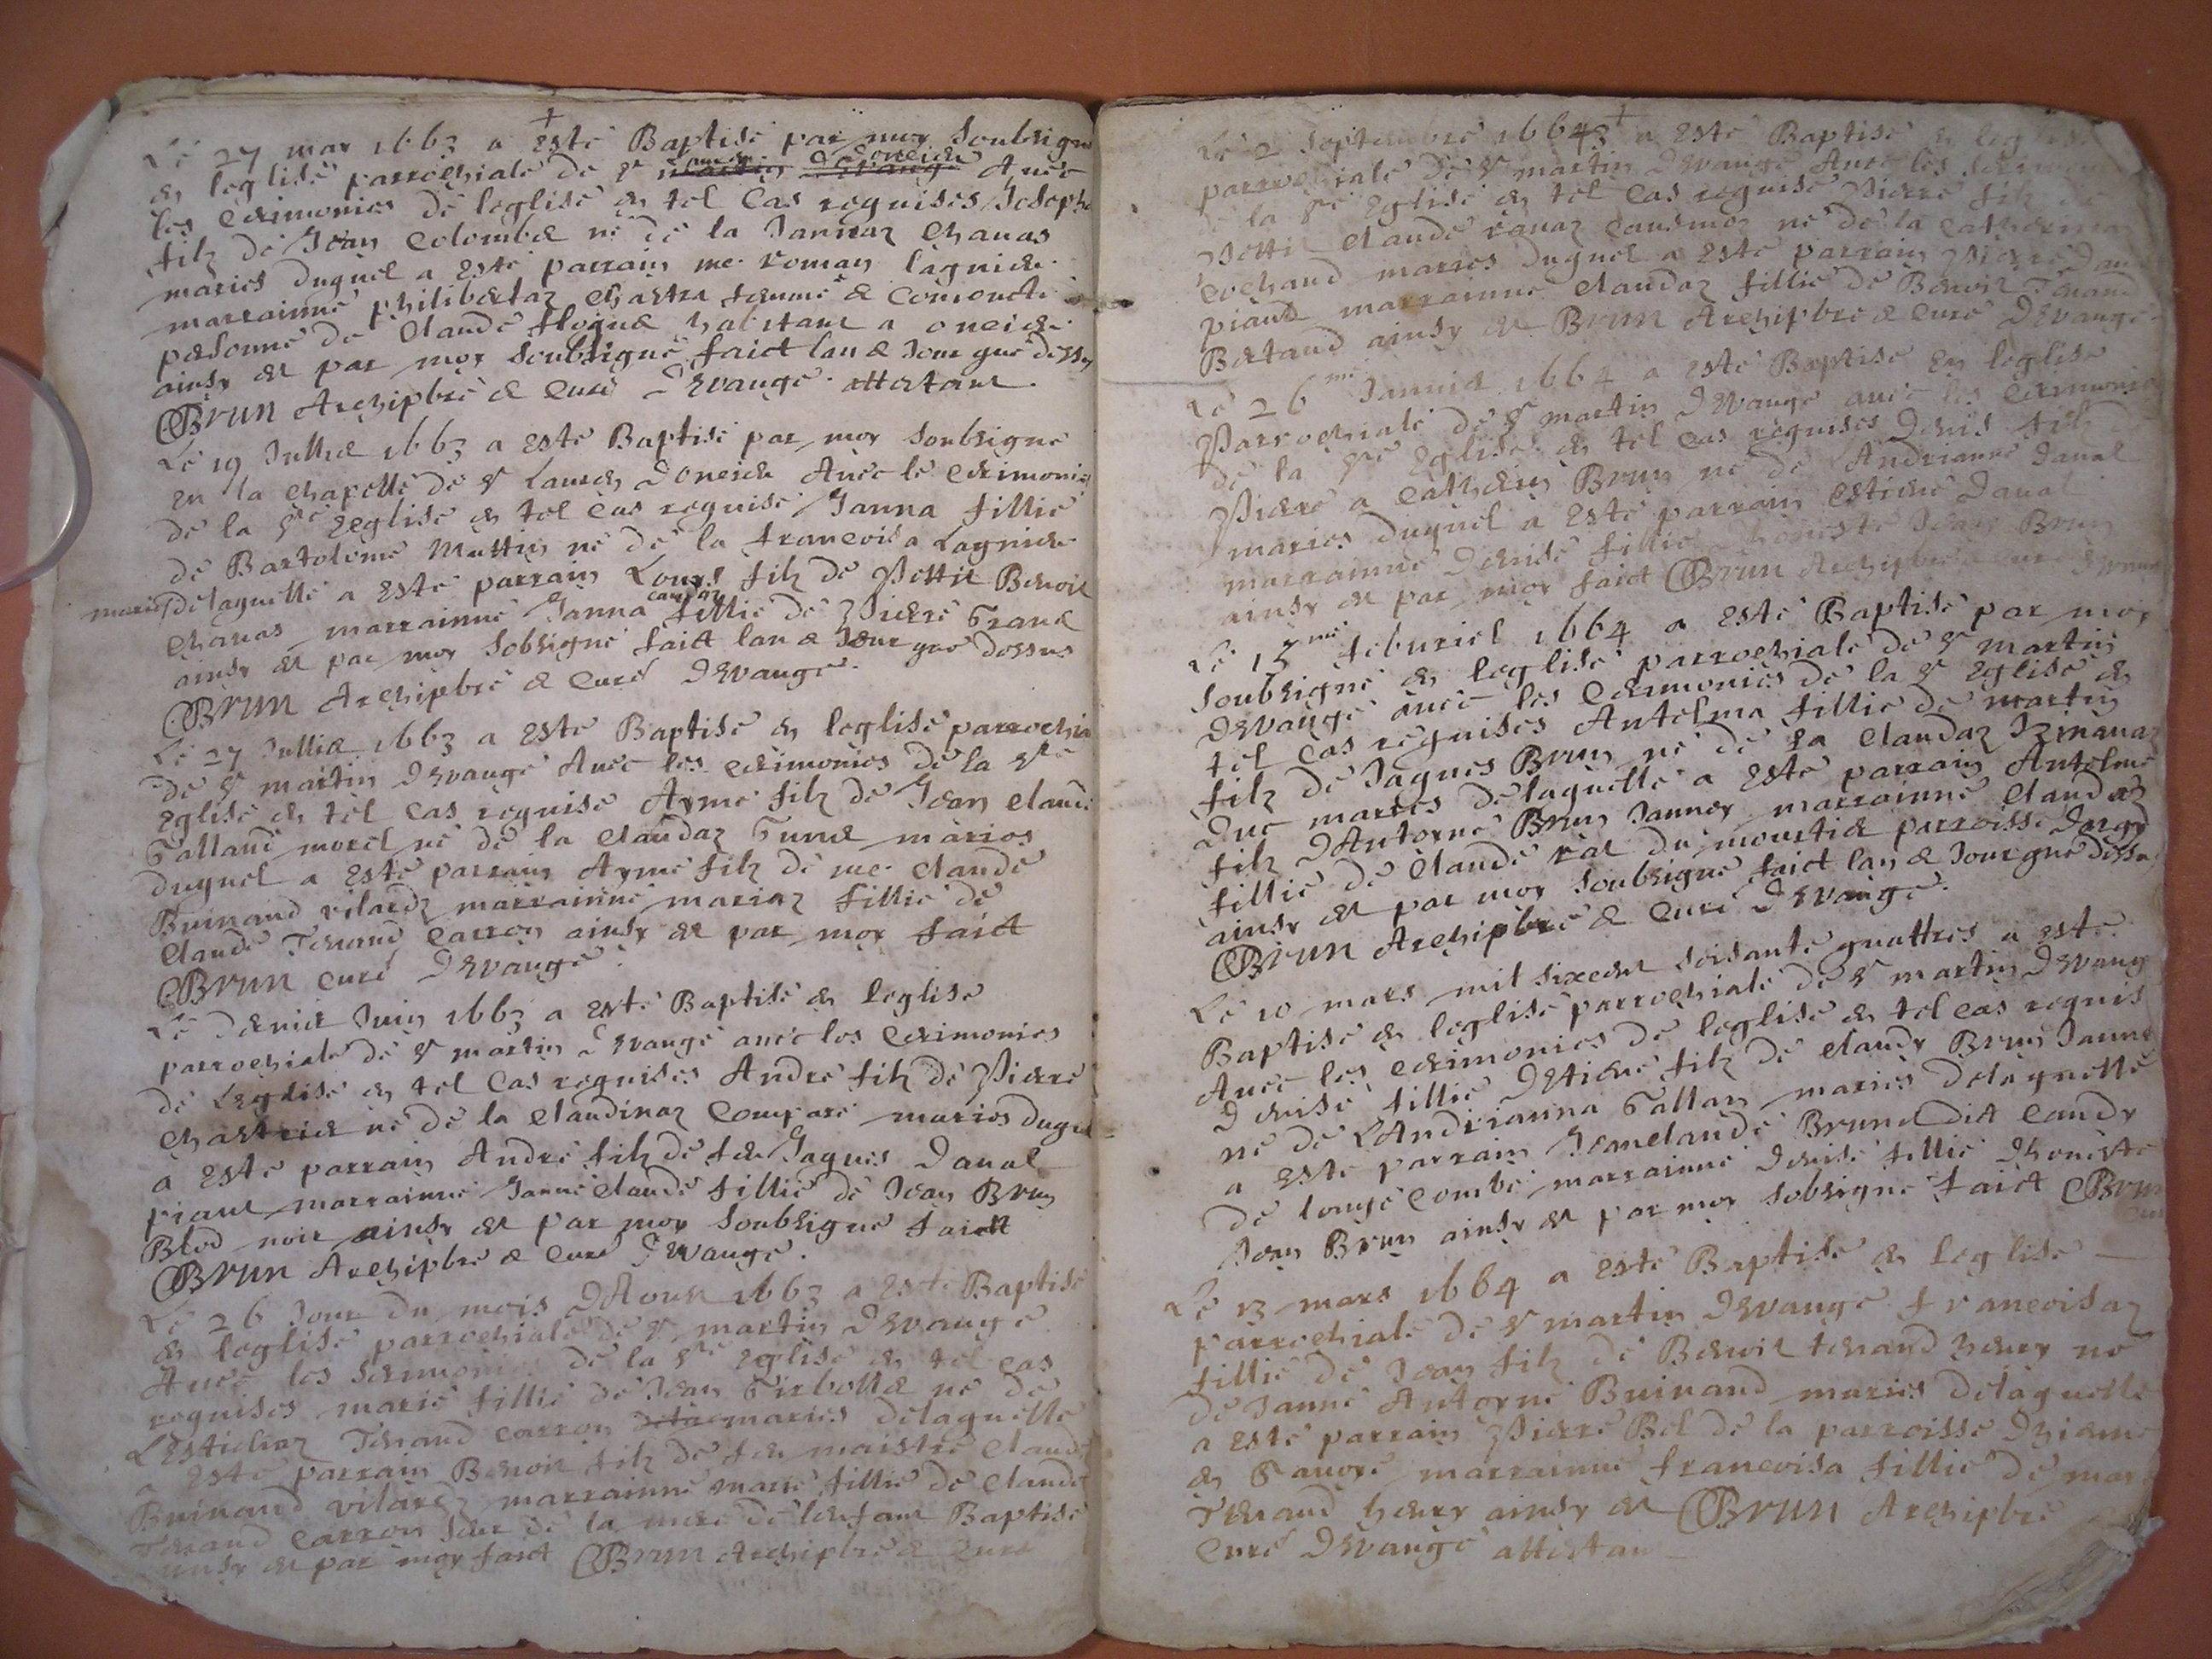 Le 27 may 1663 a este Baptise par moy soubsigne
en leglise parrochiale de St martin Devange Avec
les cerimonies de leglise en tel cas requises Joseph
filz de Jean Colombet ne de la Jannaz Chavas
maries duquel a este parrain me roman lagnier
marrainne philibertaz femme & conioncte
personne de Claude habitant a oneick
ainsy est par moy soubsigne faict lan & Jour que dessus
Brun Archipbre & Cure Devange attestant
Le 19 Jullie 1663 a este Baptise par moy soubsigne
en la chapelle de St Laurens Doneick Avec le cerimonies
de la Ste eglise en tel cas requise Janna fillie
de Bartoleme Muttin ne de la francoisa Lagnier
maries delaquelle a este parrain Louys filz de Pettit Benoit
Chavas marrainne Janna fillie de Pierre
ainsy est par moy sobsigne faict lan & Jour que dessus
Brun Archipbre & Cure Devange
Le 27 Jullie 1663 a este Baptise en leglise parrochia
de St martin Devange Avec les cerimonies de la Ste
eglise en tel cas requise Ayme filz de Jean claude
Galland morel ne de la claudaz maries
duquel a este parrain Ayme filz de me claude
Buinand vilardz marrainne mariaz fillie de
claude Tenand carron ainsy est par moy faict
Brun cure Devange
Le dernier Juin 1663 a este Baptise en leglise
parrochiale de St martin Devange avec les cerimonies
de Leglise en tel cas requises Andre filz de Pierre
ne de la claudinaz Compare maries duquel
a este parrain Andre filz de feu Jaques Daval
piaut marrainne Janne claude fillie de Jean Brun
Bled noir ainsy est par moy soubsigne faict
Brun Archipbre & Cure Devange
Le 26 Jour du mois 1663 a este Baptise
en leglise parrochiale de St martin Devange
Avec les de la Ste eglise en tel cas
requises marie fillie de Jean Girbollet ne de
Tenand carron maries delaquelle
a este parrain Benoit filz de feu maistre claude
Buinand vilardz marrainne marie fillie de claude
Tenand carron seur de la mere de lenfant Baptise
ainsy est par moy faict Brun Archipbre & Cure
Le 2 septembre a este Baptise en leglise
parrochiale de St martin Devange Avec les
de la Ste eglise en tel cas requise Pierre filz de
Pettit claude ravaz ne de la catherinaz
cochand maries duquel a este parrain Pierre
piaud marrainne claudaz fillie de Benoit Tenand
Bertand ainsy est Brun Archipbre & cure Devange
Le 26me Janvier 1664 a este Baptise en leglise
Parrochiale de St martin Devange avec les cerimonies
de la Ste eglise en tel cas requises Denis filz
Pierre a Catherin Brun ne de LAndrianne Daval
maries duquel a este parrain estienne Daval
marrainne Denise fillie honeste Jean Brun
ainsy est par moy faict Brun Archipbre
Le 15me feburiel 1664 a este Baptise par moy
soubsigne en leglise parrochiale de St martin
Devange avec les cerimonies de la St eglise en
tel cas requises Antelma fillie de martin
filz de Jaques Brun ne de la claudaz
Duc maries delaquelle a este parrain Antelme
filz DAntoyne Brun Jannoy marrainne claudaz
fillie de claude du moustier parroisse
ainsy est par moy soubsigne faict lan & Jour que dessus
Brun Archipbre & Cure Devange
Le 10 mars mil sixcent soisante quattres a este
Baptise en leglise parrochiale de St martin Devange
Avec les cerimonies de leglise en tel cas requis
Denise fillie DEtiene filz de claudy Brun Janne
ne de LAndrianna Gallan maries delaquelle
a este parrain Jeanclaude Brunet dict candy
de longecombe marrainne Denise fillie Dhoneste
Jean Brun ainsy est par moy sobsigne faict Brun
Le 13 mars 1664 a este Baptise en leglise
parrochiale de St martin Devange francoisaz
fillie de Jean filz de Benoit tenand henry ne
de Janne Antoyne Buinand maries delaquelle
a este parrain Pierre Bel de la parroisse
en Savoye marrainne francoisa fillie de
Tenand henry ainsy est Brun Archipbre
Cure Devange attestant